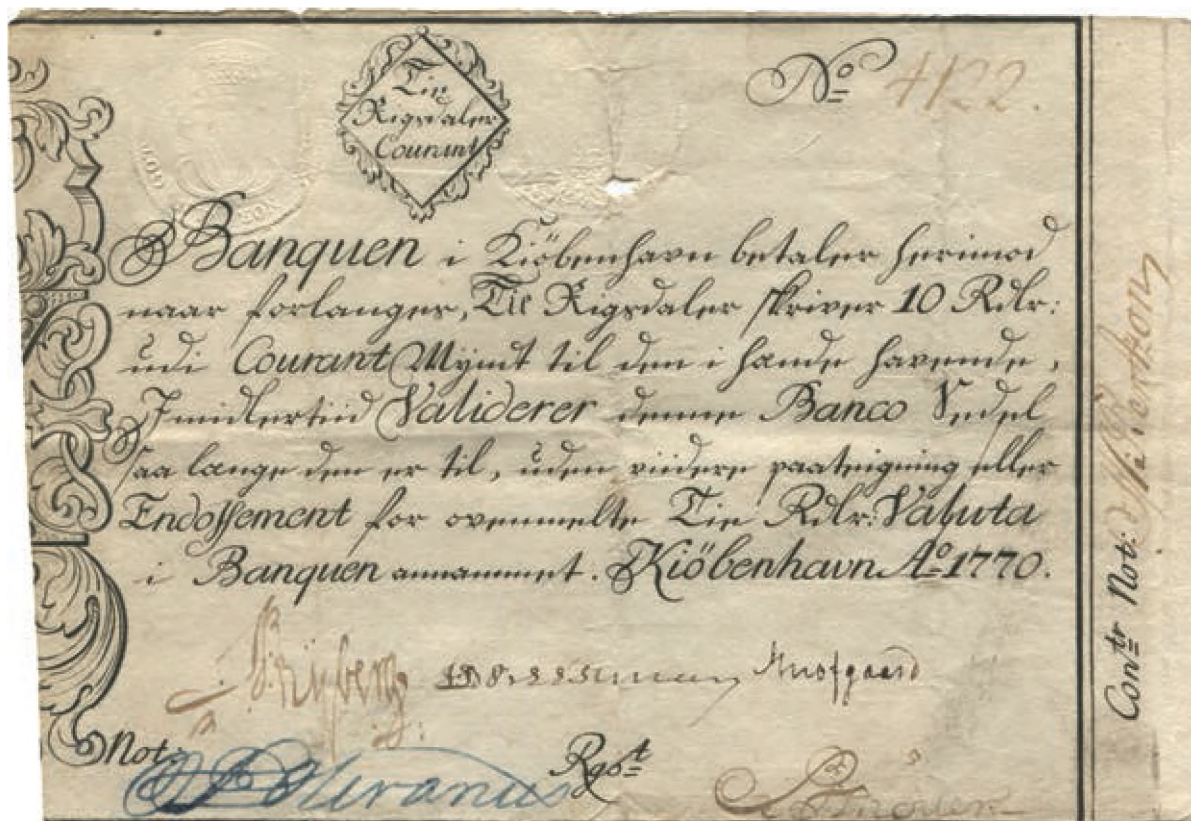 Tie
Rigsdaler
Courant
No 4122.
Banquen i Kiöbenhavn betaler herimod
naar forlanges, Tie Rigsdaler skriver 10 Rdlr:
udi Courant Mynt til den i hænde havende,
Imidlertiid Validerer denne Banco Sedel
saa længe den er til, uden viidere paategning eller
Endossement for ovenmelte Tie Rdlr: Valuta
i Banquen annammet. Kiöbenhavn Ao 1770.
Knofgaard
Not:
Rgst
Contr Not: